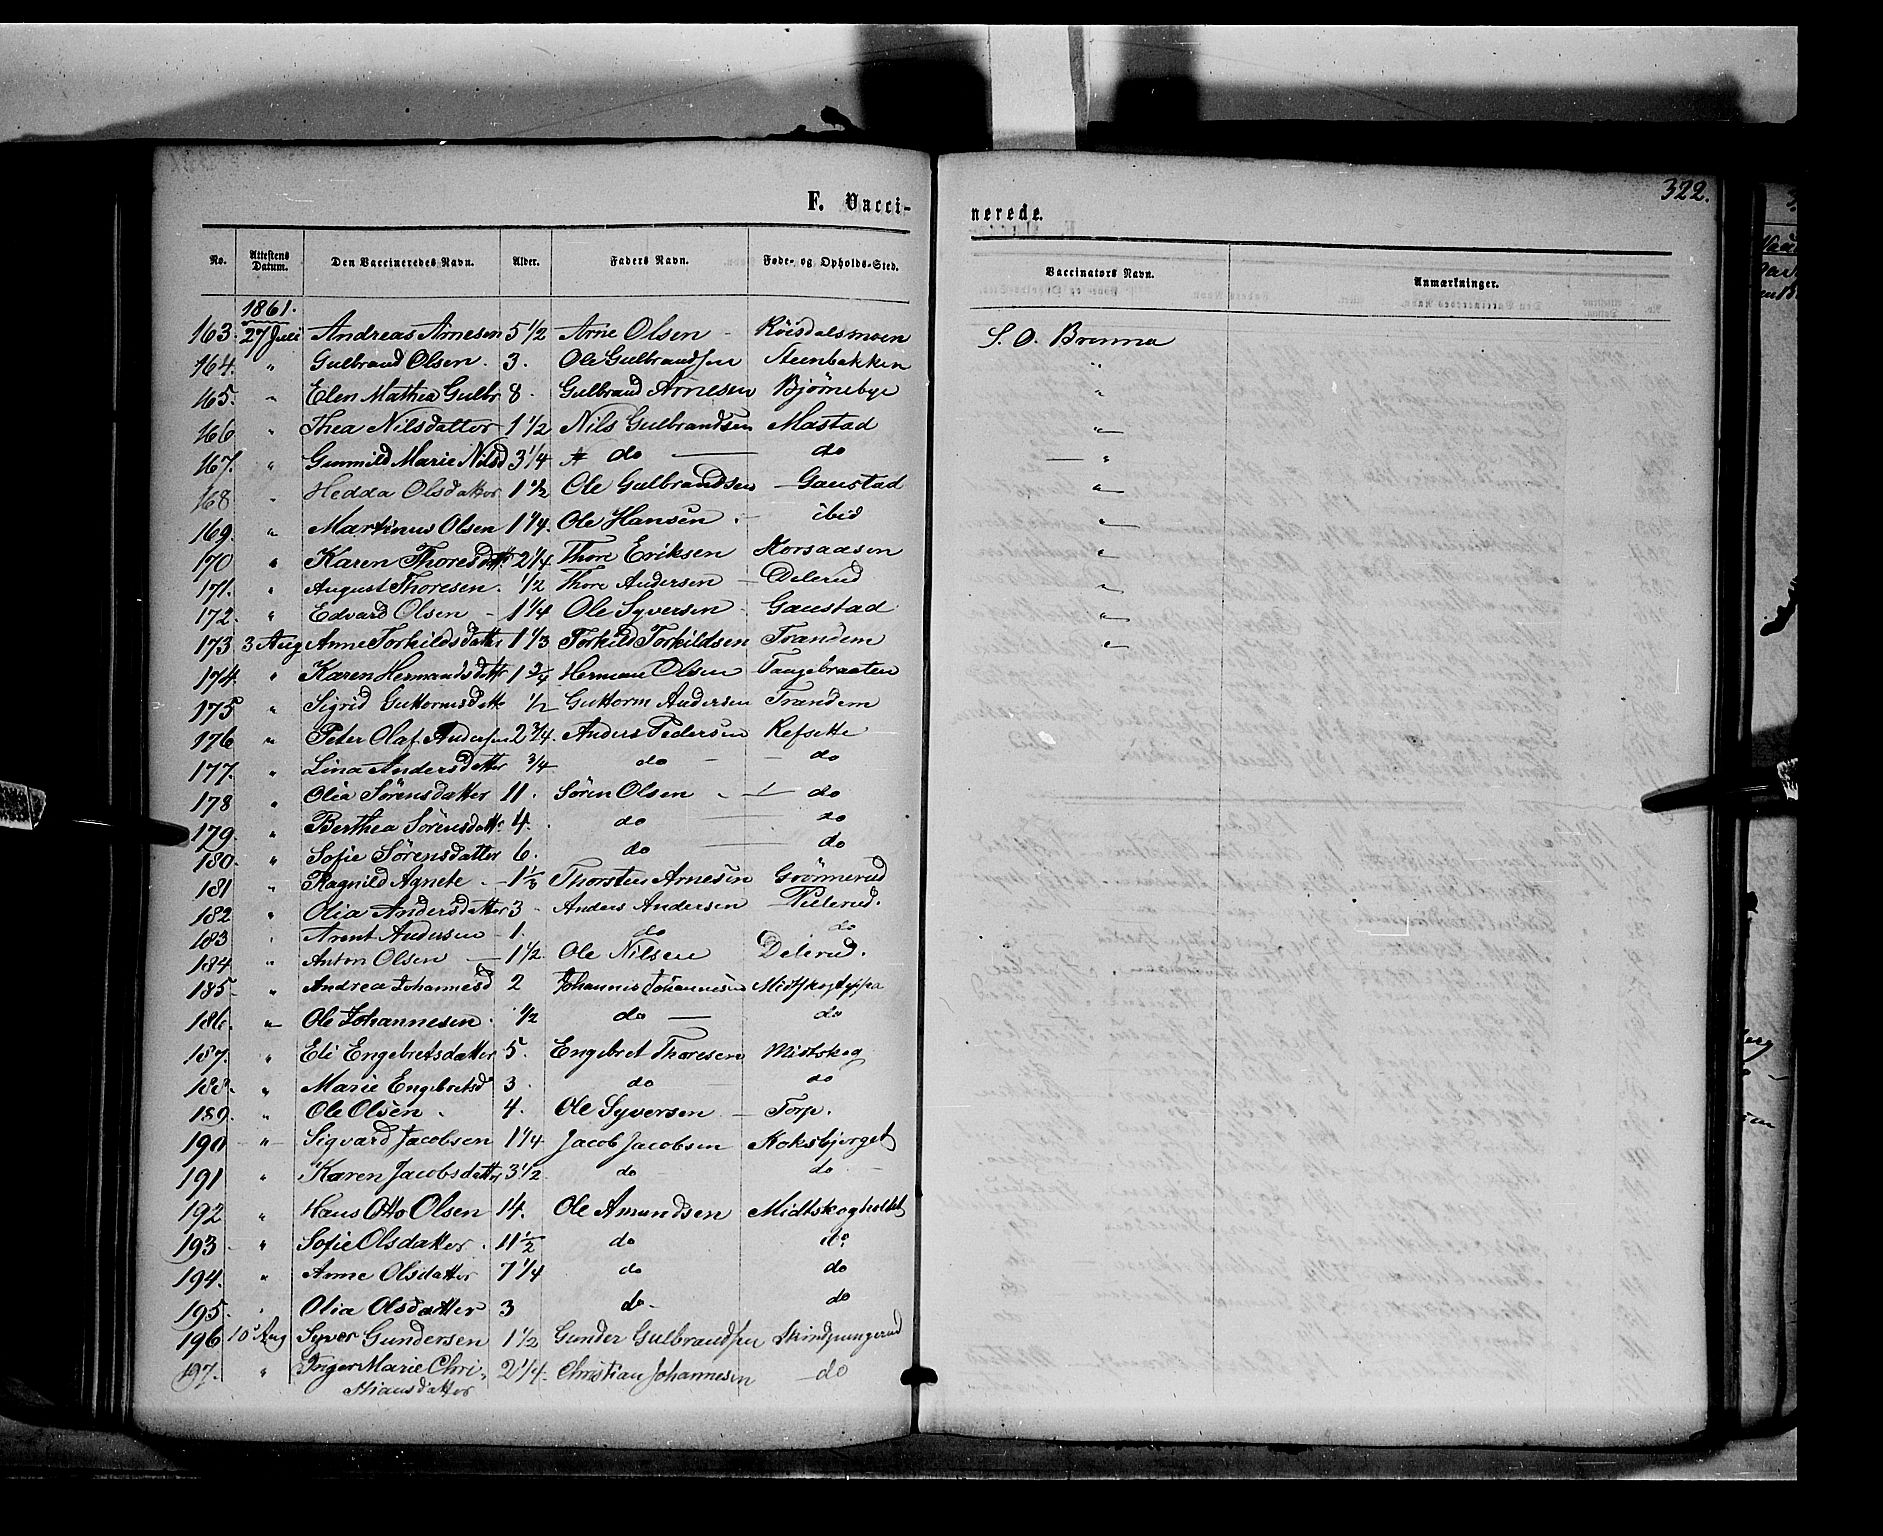 F. Vacci-
nerede.
322.
No. Attestens Datum. Den Vaccineredes Navn. Alder. Faders Navn. Føde- og Opholds-Sted. Vaccinators Navn. Anmærkninger.
1861.
163. 27 Juli Andreas Arnesen 5 1/2 Arne Olsen - Röisdalsmoen S. O. Brenna
164. " Gulbrand Olsen. 3. Ole Gulbrandsen Steenbakken "
165. " Elen Mathea Gulbr 8 - Gulbrand Arnesen Bjørnebye "
166 " Thea Nilsdatter - 1 1/2 Nils Gulbrandsen Mastad "
167. " Gunnild Marie Nilsd 3 1/4 do — do — "
168 " Hedda Olsdatter 1 1/2 Ole Gulbrandsen - Gaustad "
169. " Martinus Olsen 1 1/4. Ole Hansen. - ibid "
170 " Karen Thoresdatt. 2 1/4 Thore Eriksen Korsaasen "
171. " August Thoresen. 1/2 Thore Andersen - Delerud "
172. " Edvard Olsen - 1 1/4 Ole Syversen - Gaustad "
173 3 Aug Anne Torkildsdatter 1 1/3 Torkild Torkildsen Trandem "
174. " Karen Hermandsdatter 1 3/4 Herman Olsen Taagebraaten
175 " Sigrid Guttormsdatt 1/2 Guttorm Andersen Trandem
176 " Peter Olaf Andersen 2 3/4. Anders Pedersen Refsette
177. " Lina Andersdatter 3/4 do - - do
178 " Olia Sörensdatter 11. Sören Olsen - - do
179. " Berthea Sörensdatt. 4. do — do
180. " Sofie Sørensdatter 6. do — do
181 " Ragnild Agnete. - 1 1/3 Thorsten Arnesen Grönnerud
182. " Olia Andersdatter 3 - Anders Andersen Pielerud.
183 " Arent Andersen - 1. do do
184 " Anton Olsen — 1 1/2. Ole Nilsen Delerud.
185 " Andrea Johannesd 2 Johannes Johannesen Midtskogteppa
186. " Ole Johannesen. 1/2 do — do
187. " Eli Engebretsdatter 5. Engebret Thoresen Midtskog
188. " Marie Engebretsd 3. do — do
189. " Ole Olsen. 4. Ole Syversen - Torp.
190 - " - Sigvard Jacobsen 1 1/4 Jacob Jacobsen Koksbjerget
191 " Karen Jacobsdatter 3 1/2 do - do -
192 " Hans Otto Olsen 14. Ole Amundsen Midtskogholtet
193 - " Sofie Olsdatter. 11 1/2 do do
194. " Anne Olsdatter 7 1/4 do do
195. " Olia Olsdatter 3 do - do
196 10 Aug Syver Gundersen 1 1/2 Gunder Gulbrandsen Skindpungerud
197. " Inger Marie Chri- 2 1/4. Christian Johannesen - do
stiansdatter